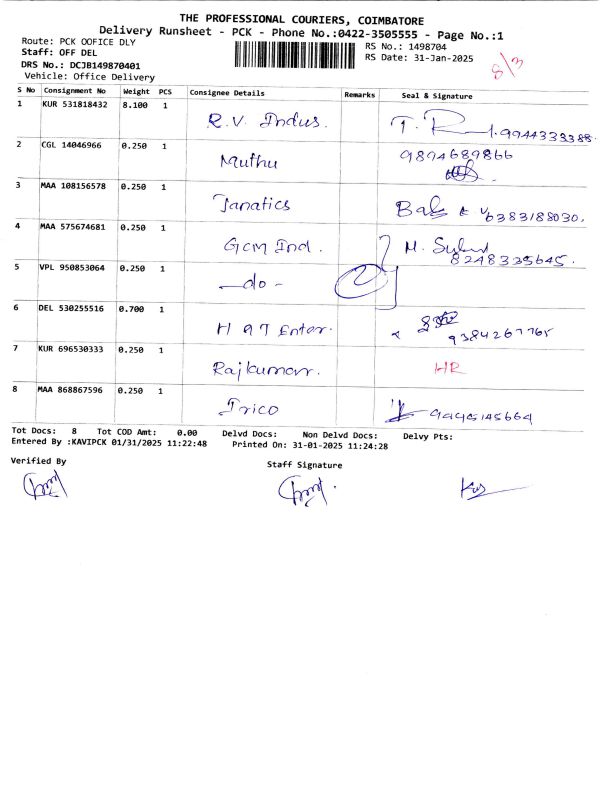 THE PROFESSIONAL COURIERS, COIMBATORE
Delivery Runsheet - PCK - Phone No.:0422-3505555 - Page No.:1
Route: PCK OOFICE DLY
RS No.: 1498704
Staff: OFF DEL
RS Date: 31-Jan-2025
DRS No.: DCJB149870401
8/3
Vehicle: Office Delivery
S No Consignment No Weight PCS Consignee Details Remarks Seal & Signature
1 KUR 531818432 8.100 1 R.V. Indus. 9944333388
2 CGL 14046966 0.250 1 Muthu 9894689866
3 MAA 108156578 0.250 1 Janatics 6383188030.
4 MAA 575674681 0.250 1 GCM Ind. 8248335645.
5 VPL 950853064 0.250 1 -do-
6 DEL 530255516 0.700 1 H 9 T Enter. 9384267765
7 KUR 696530333 0.250 1 Rajkumar. HR
8 MAA 868867596 0.250 1 Trico 9445145664
Tot Docs: 8 Tot COD Amt: 0.00 Delvd Docs: Non Delvd Docs: Delvy Pts:
Entered By :KAVIPCK 01/31/2025 11:22:48 Printed On: 31-01-2025 11:24:28
Verified By
Staff Signature